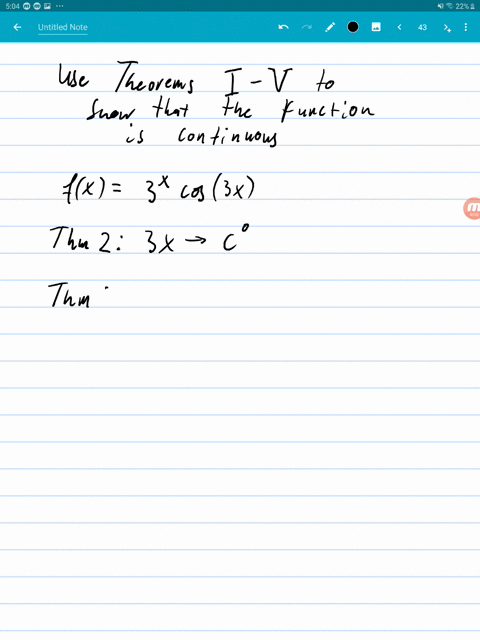 5:04
22%
Untitled Note
43
Use Theorems I - V to
show that the function
is continuous
f(x) = 3^x cos(3x)
Thm 2: 3x → C^0
Thm